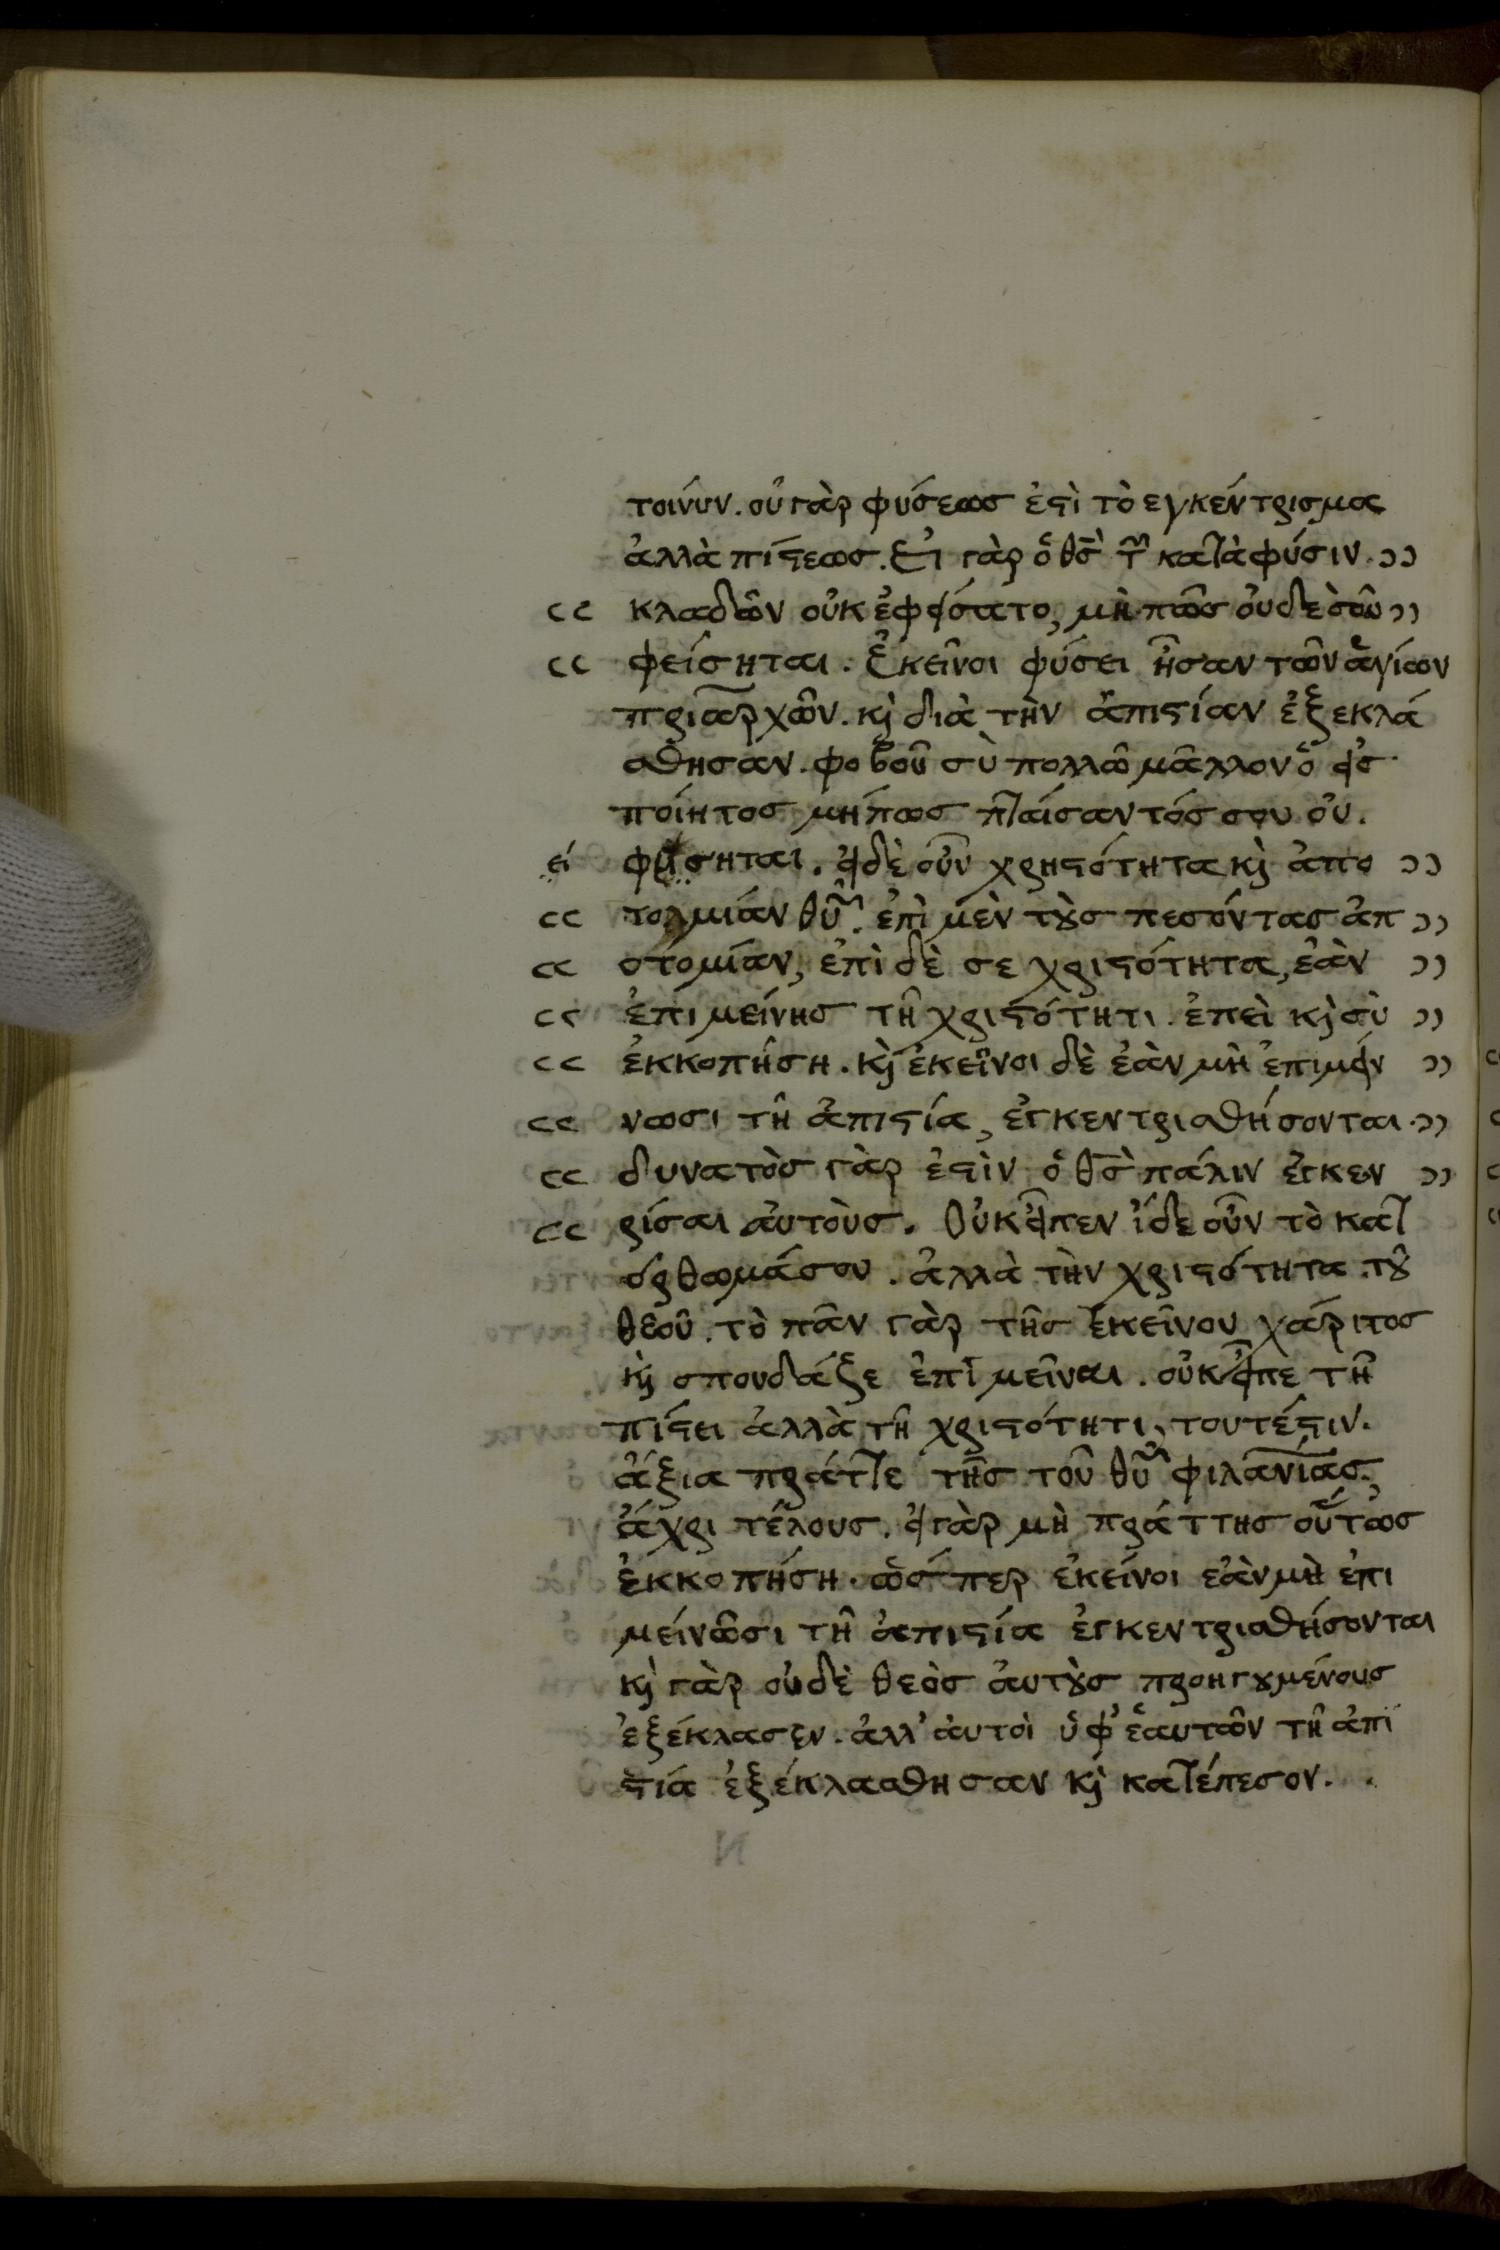 τοίνυν. οὐ γὰρ φύσεως ἐςὶ τὸ εγκέντρισμα
ἀλλὰ πίςεως. Εἰ γὰρ ὁ θσ̅ τ̅ κατὰ φύσιν.
κλαδῶν οὐκ ἐφείσατο, μὴ πῶς οὐδὲ σοῦ
φείσηται. Ἐκεῖνοι φύσει ἦσαν τῶν ἁγίων
πριαρχῶν. κὶ διὰ τὴν ἀπιςίαν ἐξεκλά
σθησαν. φοβοῦ σὺ πολλῶ μᾶλλον ὁ εἰσ
ποίητος μήπως πταίσαντός σου οὐ.
εί φησηται. εἰδὲ οὖν χρηςότητα κὶ ἀπο
τολμίαν θῦ. ἐπὶ μὲν τȣ̀ς πεσόντας ἀπ
οτομίαν, ἐπὶ δὲ σε χριςότητα, ἐὰν
ἐπιμείνης τῆ χριςότητι. ἐπεὶ κὶ σὺ
ἐκκοπήση. κὶ ἐκεῖνοι δὲ ἐὰν μὴ ἐπιμείν
νωσι τῆ ἀπιςία, ἐγκεντρισθήσονται.
δυνατὸς γὰρ ἐςὶν ὁ θσ̅ πάλιν ἐγκεν
ρίσαι αὐτοὺς. Οὐκ εἶπεν ἴδε οὖν τὸ κατ
όρθωμάσου. ἀλλὰ τὴν χριςότητα τȣ͂
θεοῦ. τὸ πᾶν γὰρ τῆς ἐκείνου χάριτος
κὶ σπουδάξε ἐπιμεῖναι. οὐκ εἶπε τῆ
πίςει ἀλλὰ τῆ χριςότητι, τουτέςιν.
ἄξια πράττε τῆς τοῦ θῦ φιλανίας,
ἄχρι τέλους. εἰ γὰρ μὴ πράττης οὕτως
ἐκκοπήση. ὥσπερ ἐκείνοι εἀν μὴ ἐπι
μείνωσι τῆ ἀπιςία ἐγκεντρισθήσονται
κὶ γὰρ οὐδὲ θεὸς ἀυτȣ̀ς προηγȣμένους
ἐξέκλασεν. ἀλλ' ἀυτοὶ ὑφ' ἑαυτῶν τῆ ἀπι
ςιά ἐξέκλασθησαν κὶ κατέπεσον.